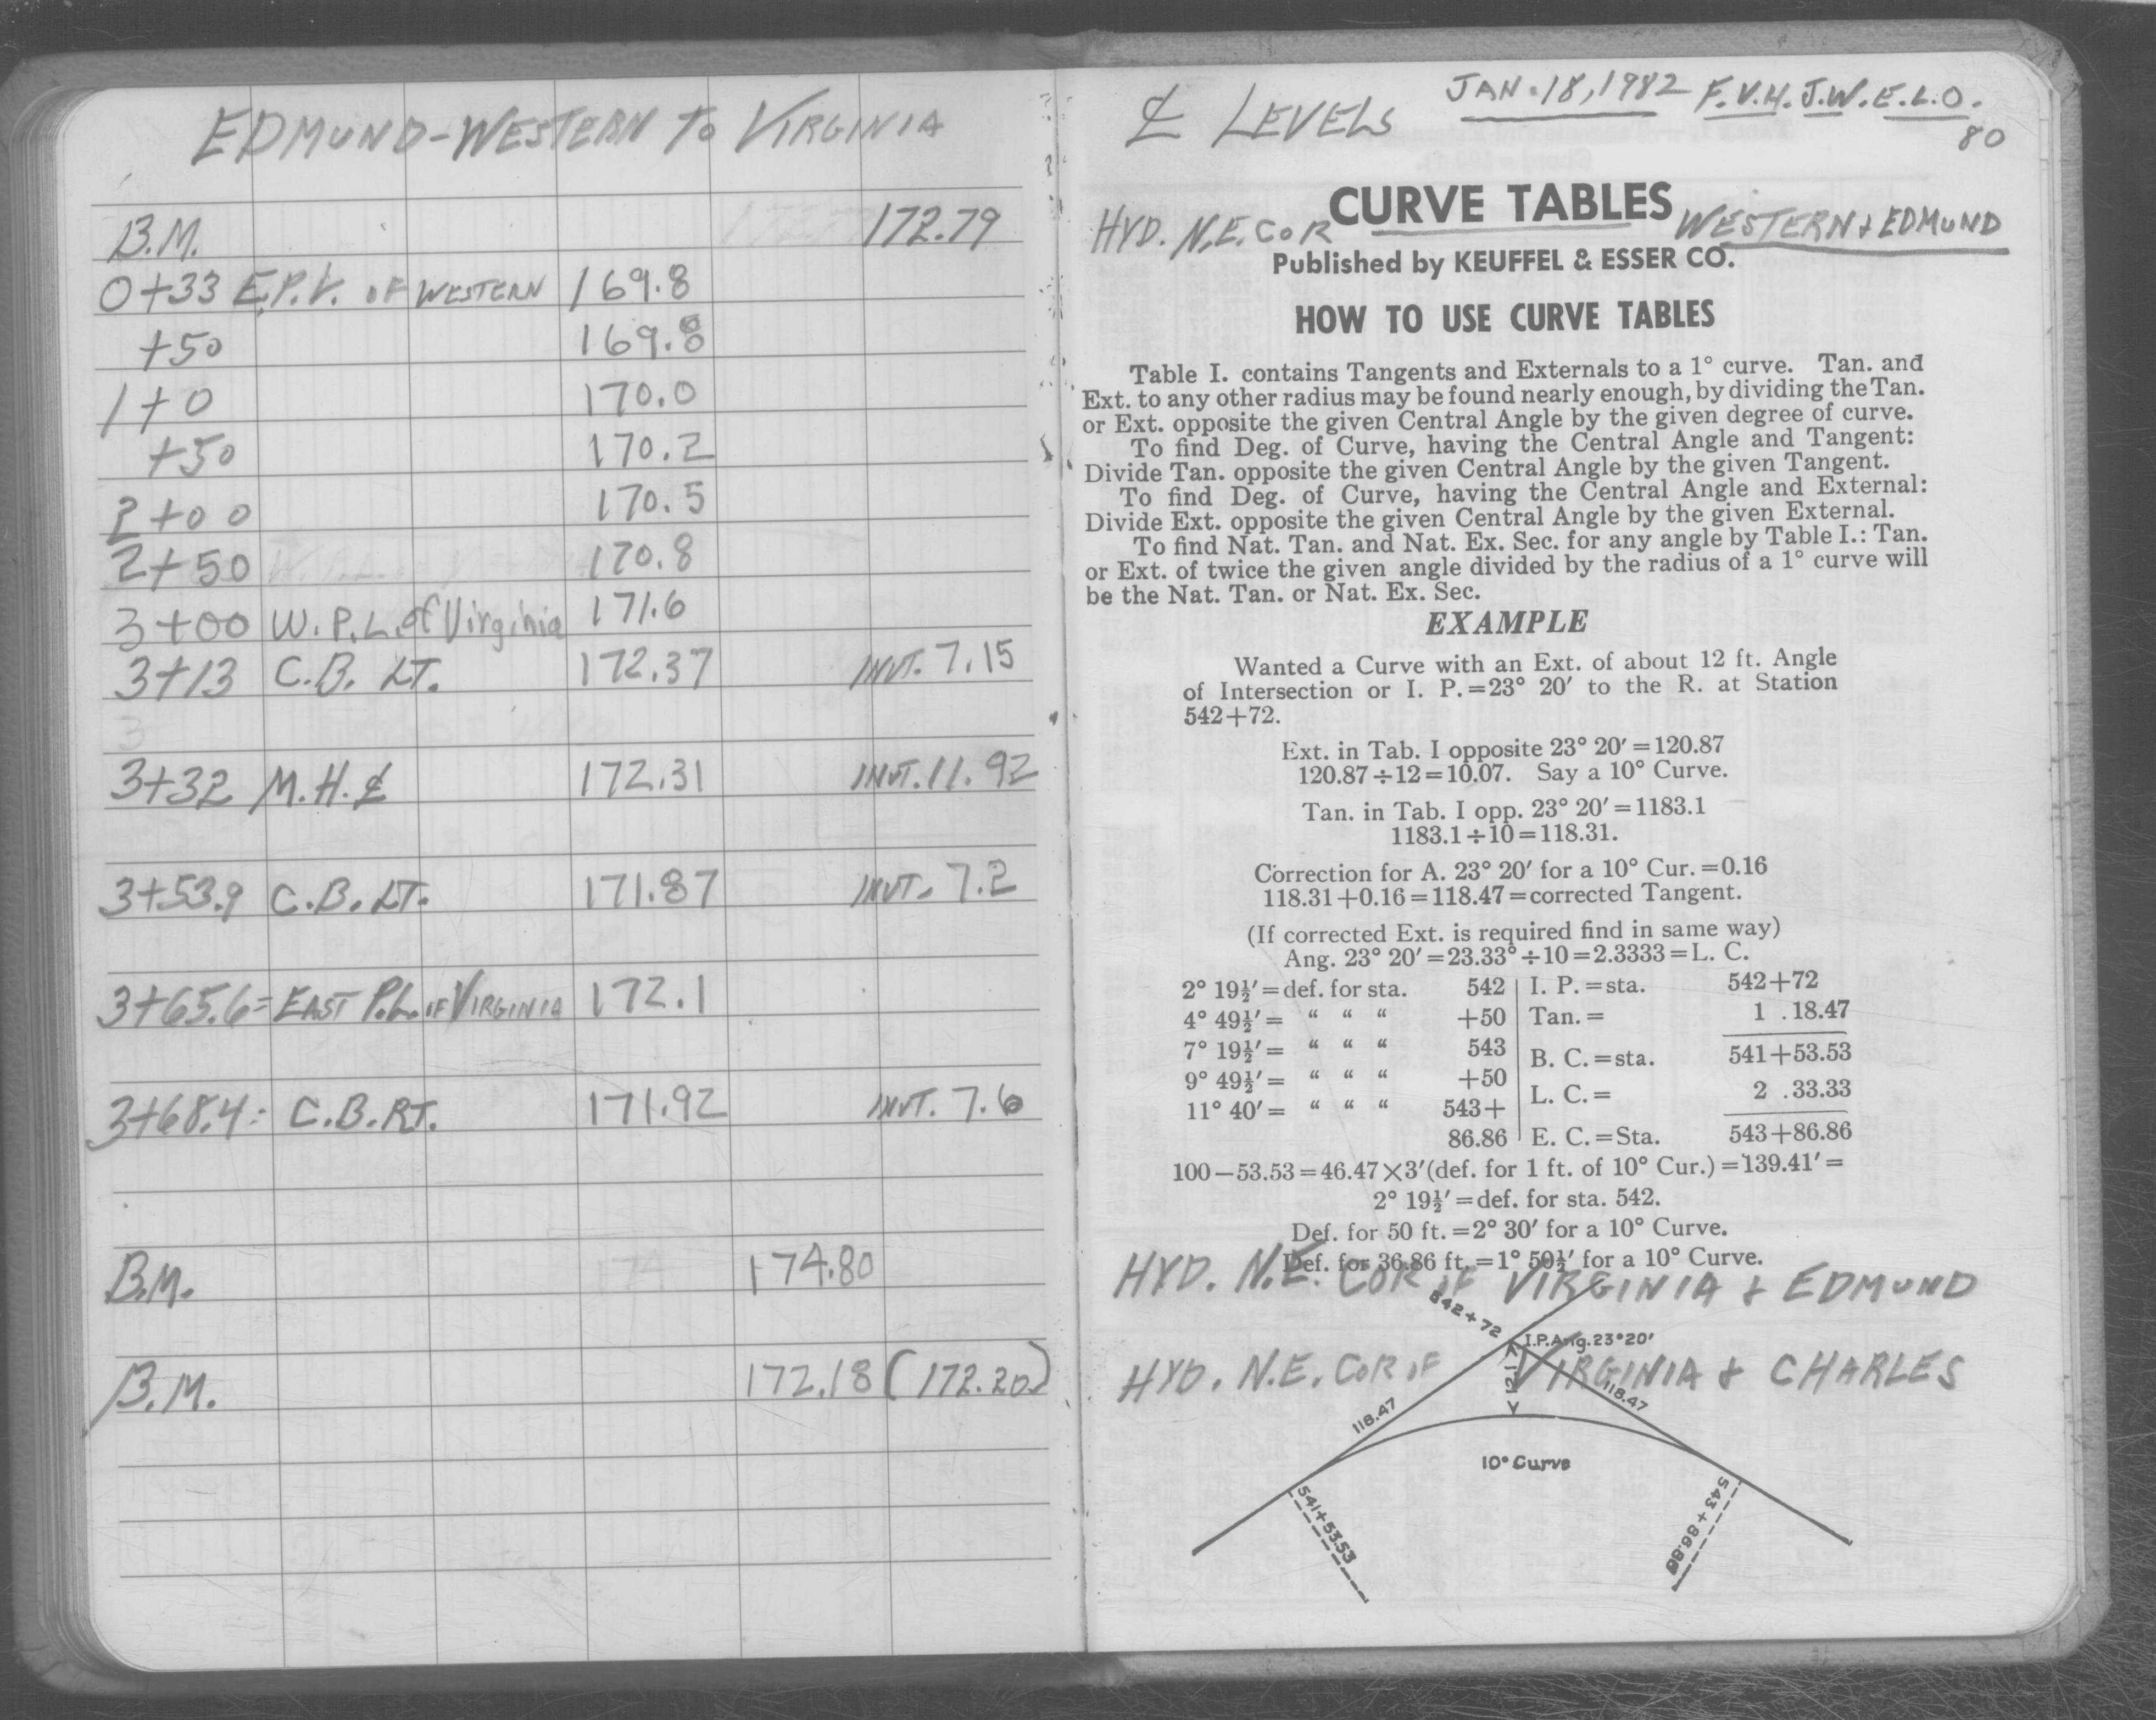 EDMUND-WESTERN TO VIRGINIA
B.M. 172.79
0+33 E.P.L. OF WESTERN 169.8
+50 169.8
1+0 170.0
+50 170.2
2+00 170.5
2+50 170.8
3+00 W.P.L. of Virginia 171.6
3+13 C.B. LT. 172.37 INVT. 7.15
3+32 M.H. ℄ 172.31 INVT. 11.92
3+53.9 C.B. LT. 171.87 INVT. 7.2
3+65.6= EAST P.L. OF VIRGINIA 172.1
3+68.4= C.B. RT. 171.92 INVT. 7.6
B.M. 174.80
B.M. 172.18 (172.20)
℄ LEVELS JAN. 18, 1982 F.V.H. J.W. E.L.O.
80
CURVE TABLES
HYD. N.E. COR WESTERN & EDMUND
Published by KEUFFEL & ESSER CO.
HOW TO USE CURVE TABLES
Table I. contains Tangents and Externals to a 1° curve. Tan. and
Ext. to any other radius may be found nearly enough, by dividing the Tan.
or Ext. opposite the given Central Angle by the given degree of curve.
To find Deg. of Curve, having the Central Angle and Tangent:
Divide Tan. opposite the given Central Angle by the given Tangent.
To find Deg. of Curve, having the Central Angle and External:
Divide Ext. opposite the given Central Angle by the given External.
To find Nat. Tan. and Nat. Ex. Sec. for any angle by Table I.: Tan.
or Ext. of twice the given angle divided by the radius of a 1° curve will
be the Nat. Tan. or Nat. Ex. Sec.
EXAMPLE
Wanted a Curve with an Ext. of about 12 ft. Angle
of Intersection or I. P.=23° 20′ to the R. at Station
542+72.
Ext. in Tab. I opposite 23° 20′=120.87
120.87÷12=10.07. Say a 10° Curve.
Tan. in Tab. I opp. 23° 20′=1183.1
1183.1÷10=118.31.
Correction for A. 23° 20′ for a 10° Cur.=0.16
118.31+0.16=118.47=corrected Tangent.
(If corrected Ext. is required find in same way)
Ang. 23° 20′=23.33°÷10=2.3333=L. C.
2° 19½′=def. for sta. 542 | I. P.=sta. 542+72
4° 49½′= “ “ “ +50 | Tan.= 1 .18.47
7° 19½′= “ “ “ 543 | B. C.=sta. 541+53.53
9° 49½′= “ “ “ +50 | L. C.= 2 .33.33
11° 40′= “ “ “ 543+
86.86 | E. C.=Sta. 543+86.86
100−53.53=46.47×3′(def. for 1 ft. of 10° Cur.)=139.41′=
2° 19½′=def. for sta. 542.
Def. for 50 ft.=2° 30′ for a 10° Curve.
Def. for 36.86 ft.=1° 50½′ for a 10° Curve.
HYD. N.E. COR OF VIRGINIA & EDMUND
542+72
I.P.Ang.23°20′
HYD. N.E. COR OF VIRGINIA & CHARLES
118.47
118.47
10° Curve
541+53.53
543+86.86